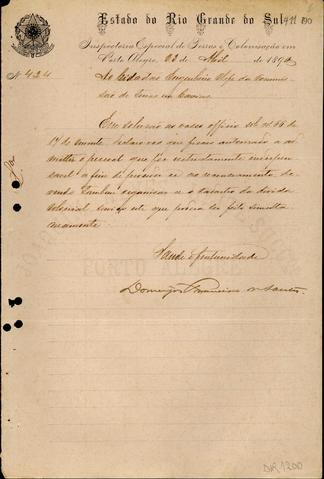 Estado do Rio Grande do Sul
Inspectoria Especial de Terras e Colonisação em
Porto Alegre, 23 de Abril de 1890
N. 424
Ao Cidadão Engenheiro Chefe da Commis-
são de Terras em Caxias
Em solução ao vosso officio sob nº 66 de
17 do corrente, declaro-vos que ficaes autorisado a ad-
mittir o pessoal que for estrictamente indispen-
savel a fim de proceder-se ao recenseamento, de-
vendo tambem organisar-se o cadastro da divida
colonial, serviço este que poderá ser feito simulta-
neamente.
Saude e fraternidade
Domingos Francisco dos Santos
PORTO ALEGRE
DR 1200